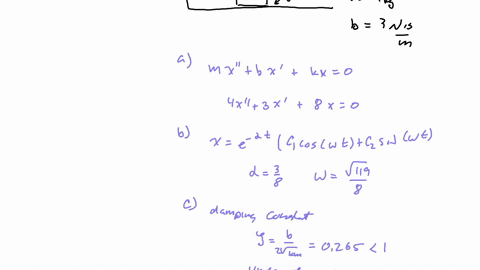 b = 3 N·s/m
a) mx'' + bx' + kx = 0
4x'' + 3x' + 8x = 0
b) x = e^{-αt} (C₁ cos(ωt) + C₂ sin(ωt))
α = 3/8 ω = √119/8
c) damping constant
ζ = b/(2√km) = 0.265 < 1